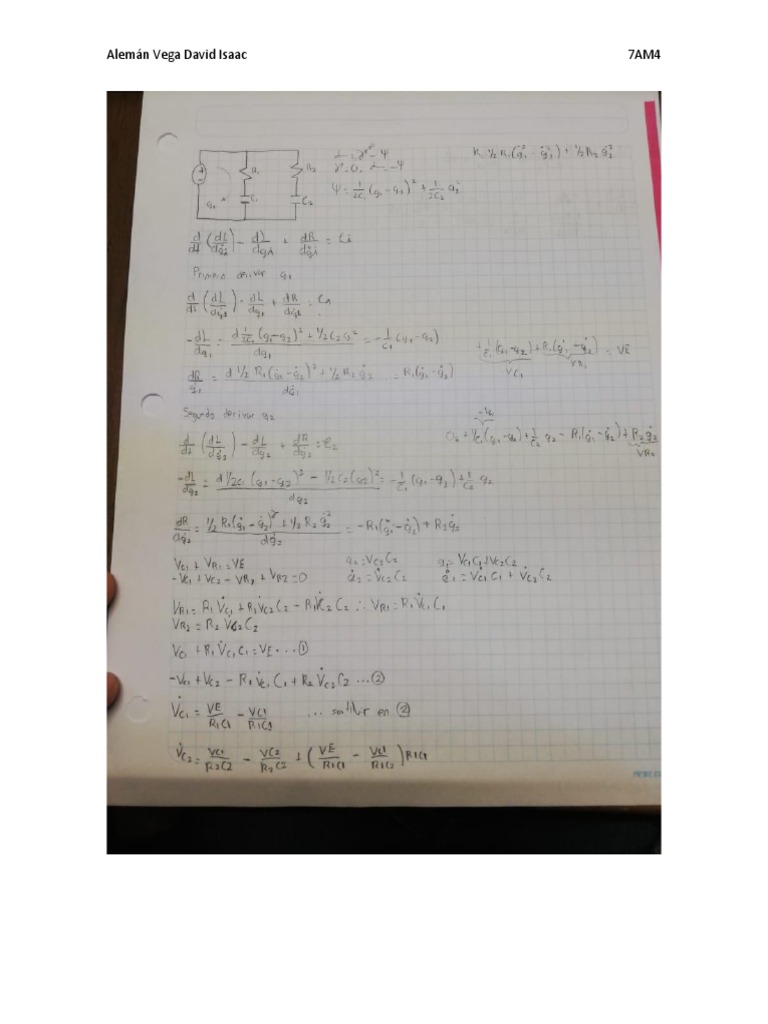 Alemán Vega David Isaac 7AM4
R_1 C_1 R_2 C_2
ψ = 1/2C_1 (q_1 - q_2)^2 + 1/2C_2 q_2^2
1/2 R_1(q̇_1^2 - q̇_2^2) + 1/2 R_2 q̇_2^2
d/dt (dL/dq̇_i) - dL/dq_i + dR/dq̇_i =
Primero derivar q_1
d/dt (dL/dq̇_1) - dL/dq_1 + dR/dq̇_1 =
-dL/dq_1 = d 1/2C_1 (q_1-q_2)^2 + 1/2C_2 q^2 / dq_1 = -1/C_1 (q_1-q_2)
+1/C_1 (q_1-q_2) + R_1(q̇_1 - q̇_2) = VE
VC_1 VR_1
dR/q̇_1 = d 1/2 R_1(q̇_1-q̇_2)^2 + 1/2 R_2 q̇_2 / dq̇_1 = R_1(q̇_1-q̇_2)
Segundo derivar q_2
d/dt (dL/dq̇_2) - dL/dq_2 + dR/dq̇_2 = E_2
1/C_1 (q_1-q_2) + 1/C_2 q_2 - R_1(q̇_1-q̇_2) + R_2 q̇_2
VR_2
-dL/dq_2 = d 1/2C_1 (q_1-q_2)^2 - 1/2C_2 (q_2)^2 / dq_2 = -1/C_1 (q_1-q_2) + 1/C_2 q_2
dR/dq̇_2 = 1/2 R_1(q̇_1-q̇_2)^2 + 1/2 R_2 q̇_2^2 / dq̇_2 = -R_1(q̇_1-q̇_2) + R_2 q̇_2
V_C1 + V_R1 = VE q_2 = V_C2 C_2 q_1 = V_C1 C_1 + V_C2 C_2
-V_C1 + V_C2 - V_R1 + V_R2 = 0 q̇_2 = V̇_C2 C_2 q̇_1 = V̇_C1 C_1 + V̇_C2 C_2
V_R1 = R_1 V̇_C1 + R_1 V̇_C2 C_2 - R_1 V̇_C2 C_2 ∴ V_R1 = R_1 V̇_C1 C_1
V_R2 = R_2 V̇_C2 C_2
V_C1 + R_1 V̇_C1 C_1 = VE ... ①
-V_C1 + V_C2 - R_1 V̇_C1 C_1 + R_2 V̇_C2 C_2 ... ②
V̇_C1 = VE/R1C1 - VC1/R1C1 ... en ②
V̇_C2 = VC1/R2C2 - VC2/R2C2 + (VE/R1C1 - VC1/R1C2) R1C1